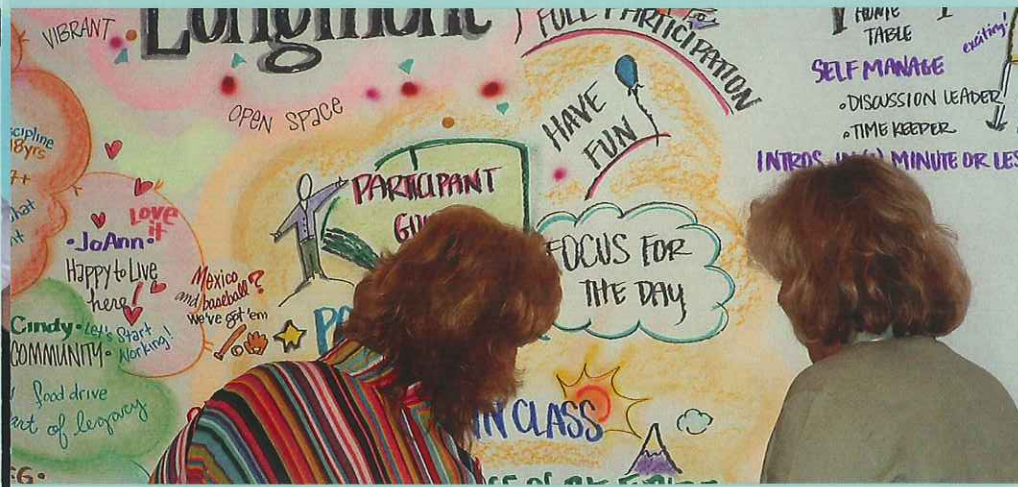 VIBRANT
Longmont
OPEN SPACE
FULL PARTICIPATION
HAVE
FUN
HOME
TABLE
exciting!
SELF MANAGE
•DISCUSSION LEADER
•TIME KEEPER
INTROS MINUTE OR LES
PARTICIPANT
GU
FOCUS FOR
THE DAY
IN CLASS
18yrs
LOVE
it
•JoAnn•
Happy to Live
here!
Mexico
and baseball?
we've got 'em
Cindy•Let's Start
Working!
COMMUNITY•
food drive
art of legacy